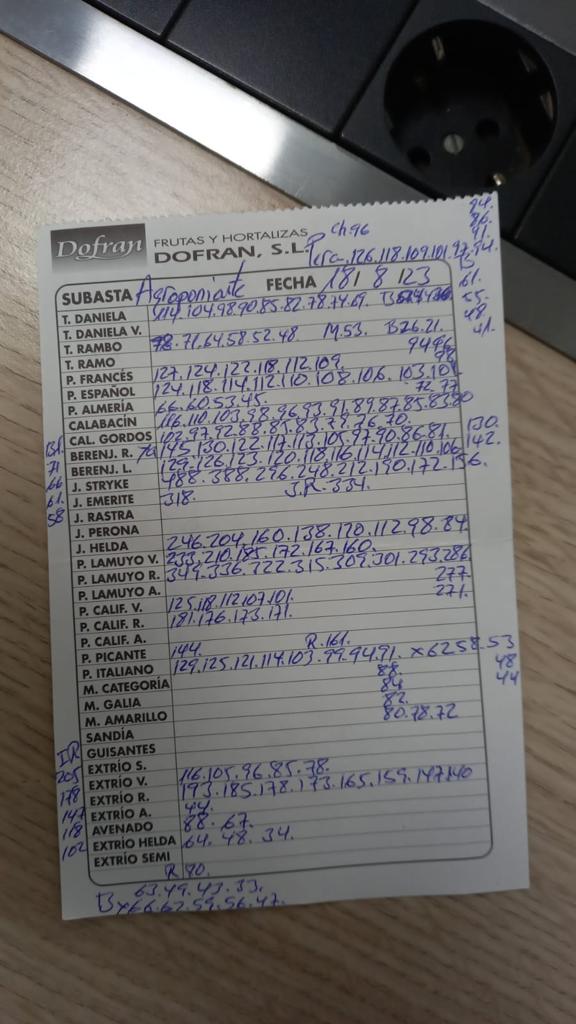 Dofran FRUTAS Y HORTALIZAS
DOFRAN, S.L.
Ch96
Pera 126.118.109.101.97.94.
94.
86.
91.
SUBASTA Agroponiente FECHA 18/8/23
T. DANIELA 114.104.98.90.85.82.78.74.69.
61.
55.
48
41.
T. DANIELA V. 78.71.64.58.52.48. M.53. B26.21.
T. RAMBO 94 96
T. RAMO
P. FRANCÉS 127.124.122.118.112.109.
P. ESPAÑOL 124.118.114.112.110.108.106.103.101
P. ALMERÍA 66.60.53.45. 72.77
CALABACÍN 116.110.103.98.96.93.91.89.87.85.83.80
CAL. GORDOS 102.97.92.88.85.83.77.76.70.
BERENJ. R. 145.130.122.117.113.105.97.90.86.81. 130.
142.
BERENJ. L. 129.126.123.120.118.116.114.112.110.106
131.
71
66
61.
58
J. STRYKE 488.388.296.248.212.190.172.156.
J. EMERITE 318. J.R. 334.
J. RASTRA
J. PERONA
J. HELDA 246.204.160.138.120.112.98.84
P. LAMUYO V. 233.210.185.172.167.160.
P. LAMUYO R. 349.336.322.315.309.301.293.286
277
P. LAMUYO A. 271.
P. CALIF. V. 125.118.112.107.101.
P. CALIF. R. 181.176.173.171.
P. CALIF. A.
P. PICANTE 144. R.161.
P. ITALIANO 129.125.121.114.103.99.94.91. x62 58.53
48
44
88.
M. CATEGORÍA 84
M. GALIA 82.
M. AMARILLO 80.78.72
SANDÍA
GUISANTES
205
178
147
118
102
EXTRÍO S. 116.105.96.85.78.
EXTRÍO V. 193.185.178.173.165.159.147.140
EXTRÍO R. 44.
EXTRÍO A. 88.67.
AVENADO 64.48.34.
EXTRÍO HELDA
EXTRÍO SEMI
R 80.
B 63.49.43.33.
x66.62.59.56.47.